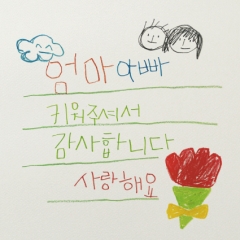 엄마 아빠
키워주셔서
감사합니다
사랑해요